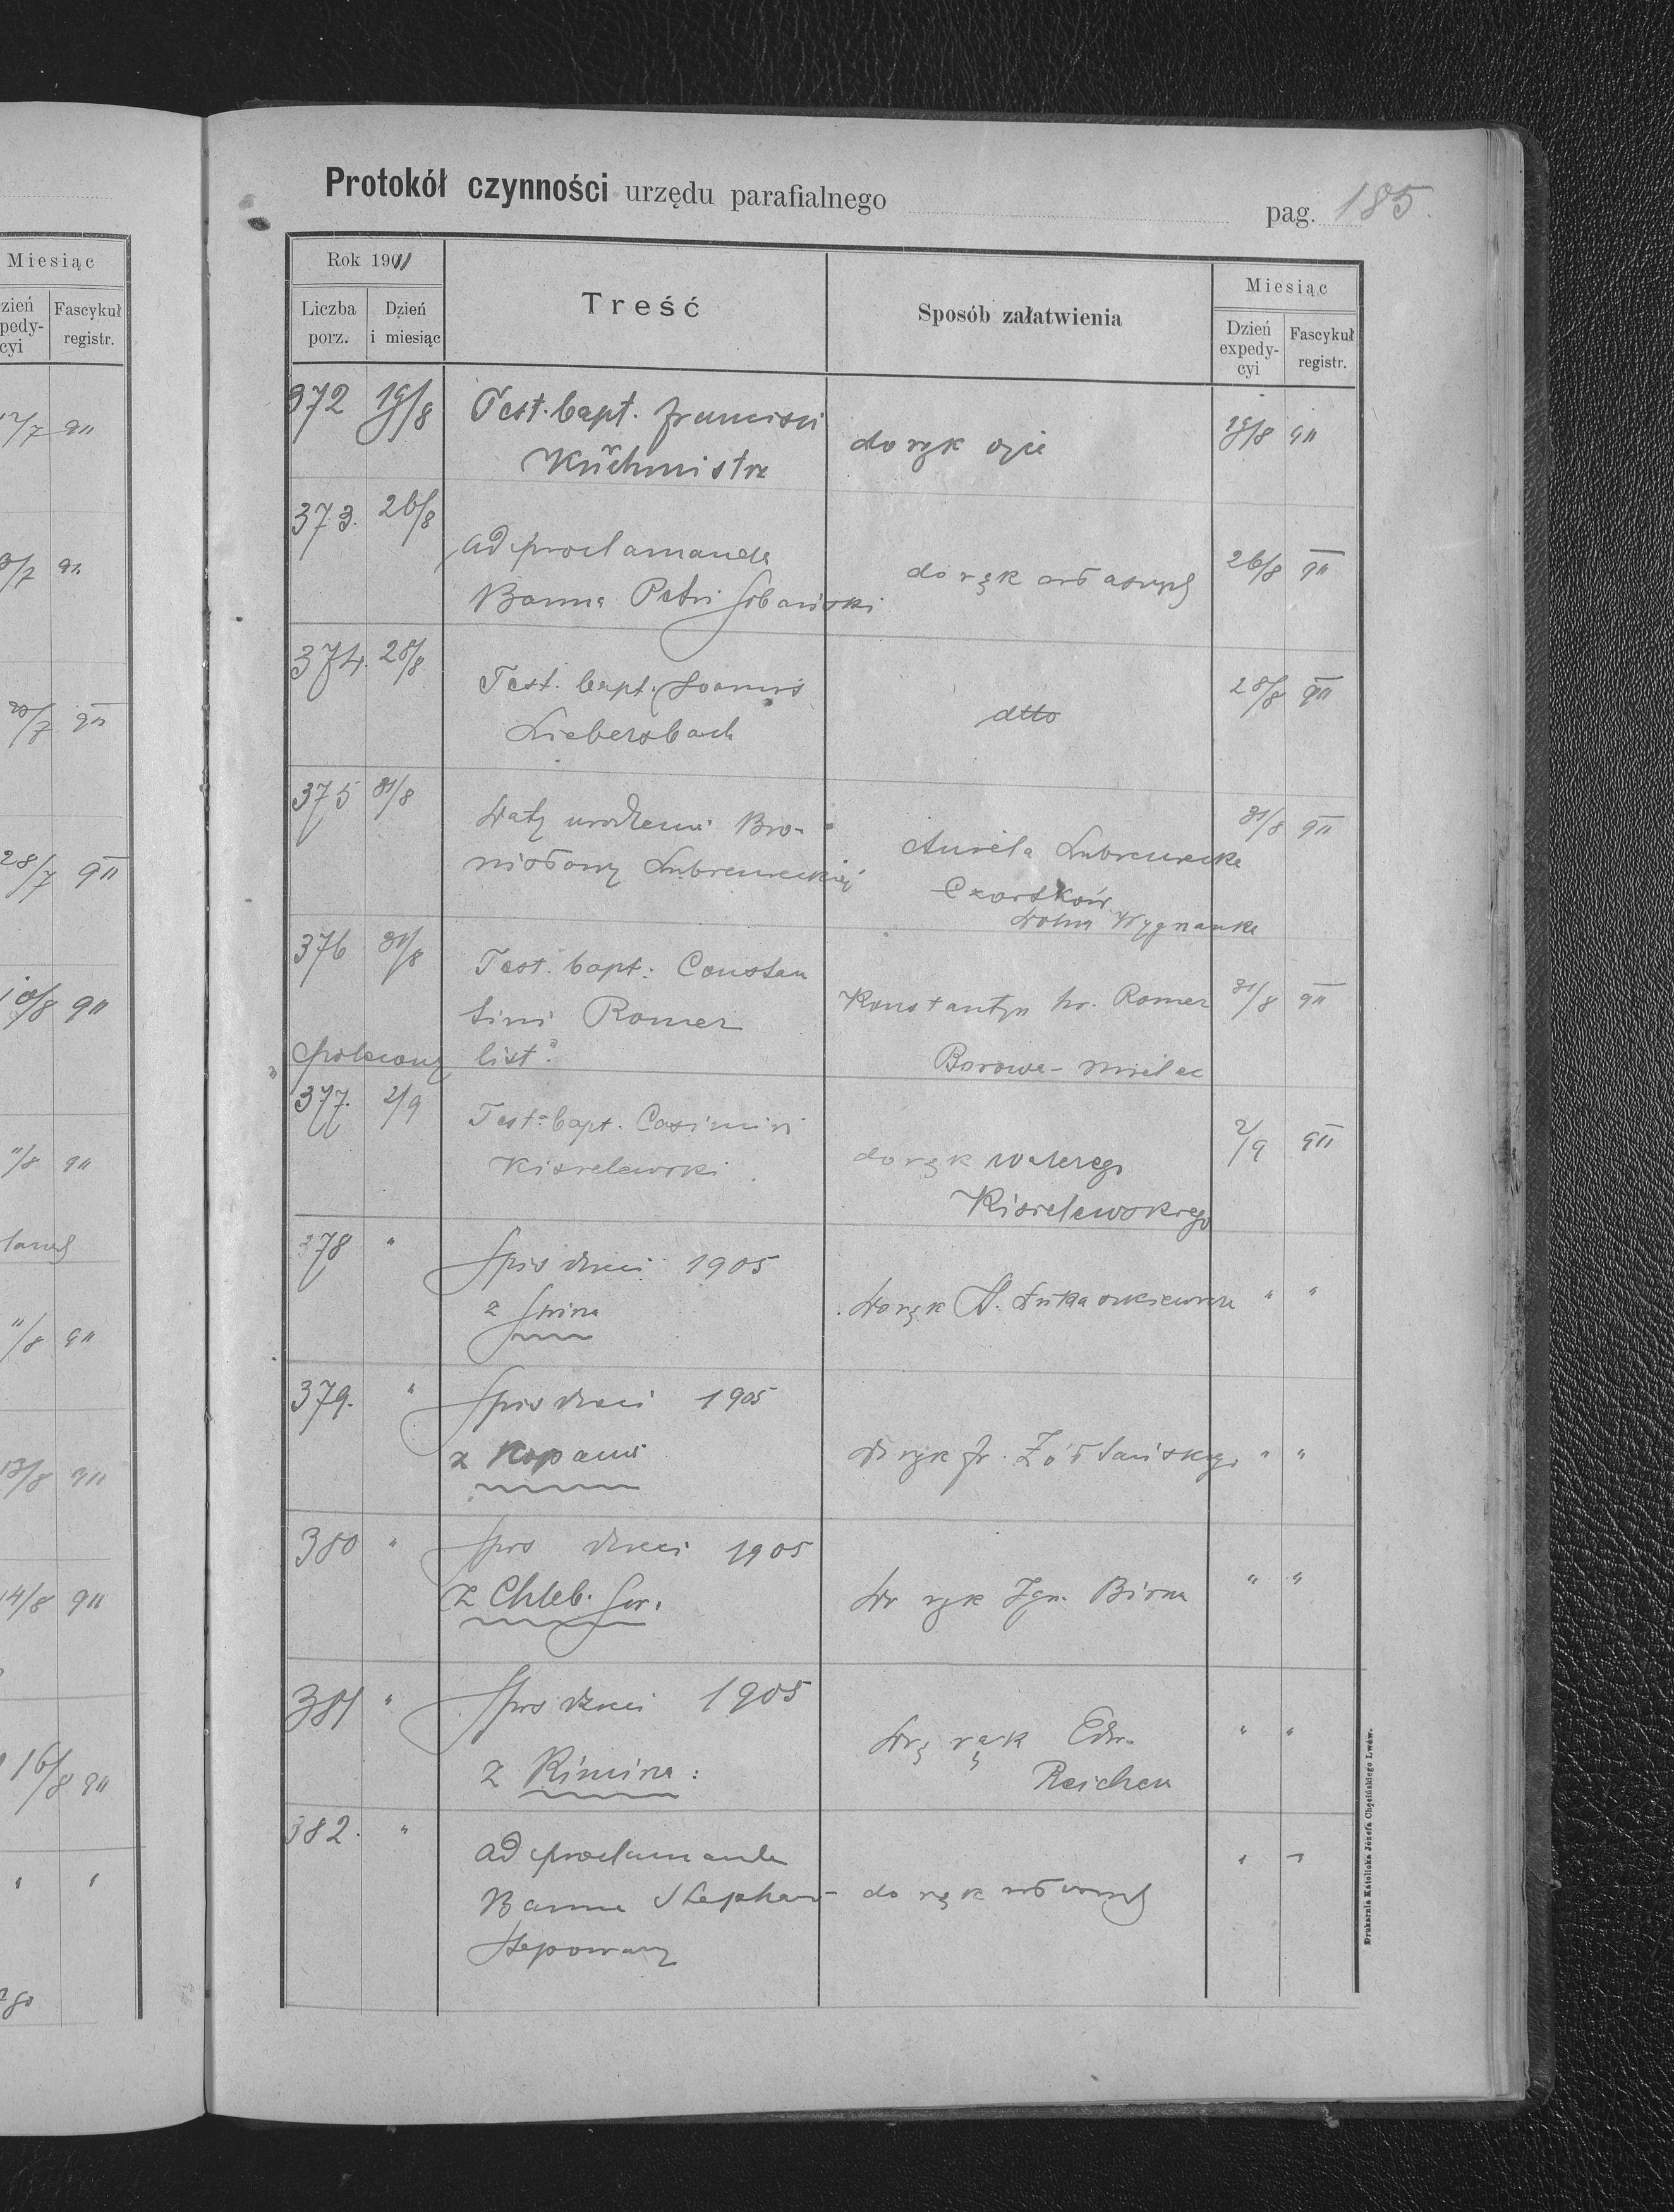 Miesiąc
zień
pedy-
cyi
Fascykuł
registr.
12/7 9II
20/7 9II
28/7 9II
10/8 9II
11/8 9II
11/8 9II
13/8 9II
14/8 9II
16/8 9II
Protokół czynności urzędu parafialnego
pag. 185.
Rok 1911
Liczba porz.
Dzień i miesiąc
Treść
Sposób załatwienia
Miesiąc
Dzień expedy-cyi
Fascykuł registr.
372 19/8 Test. bapt. Francisci
Küchmistrz
do rąk ojca
19/8 9II
373. 26/8
ad proclamanda
Banna Petri Sobański
do rąk własnych
26/8 9II
374. 28/8
Test. bapt. Joannis
Liebersbach
dtto
28/8 9II
375 31/8
Daty urodzenia Bro-
nisławy
Aurela
Czortków
Wygnanka
31/8 9II
376 31/8
Test. bapt: Constan
tini Romer
polecony list
Konstantyn hr. Romer
Borowa - Mielec
31/8 9II
377. 2/9
Test. bapt. Casimiri
Kisielewski
do rąk Walerego
Kisielewskiego
2/9 9II
378 "
Spis dzieci 1905
z
do rąk
" "
379. "
Spis dzieci 1905
z Kopani
do rąk Fr. Żółtańskiego
" "
380 "
Spis dzieci 1905
z Chleb. Św.
do rąk Ign.
" "
381 "
Spis dzieci 1905
z Rimizna:
rąk Edw.
Reichen
" "
382. "
ad proclamanda
Banna Stephani
do rąk własnych
" "
Drukarnia Katolicka Józefa Chęcińskiego Lwów.